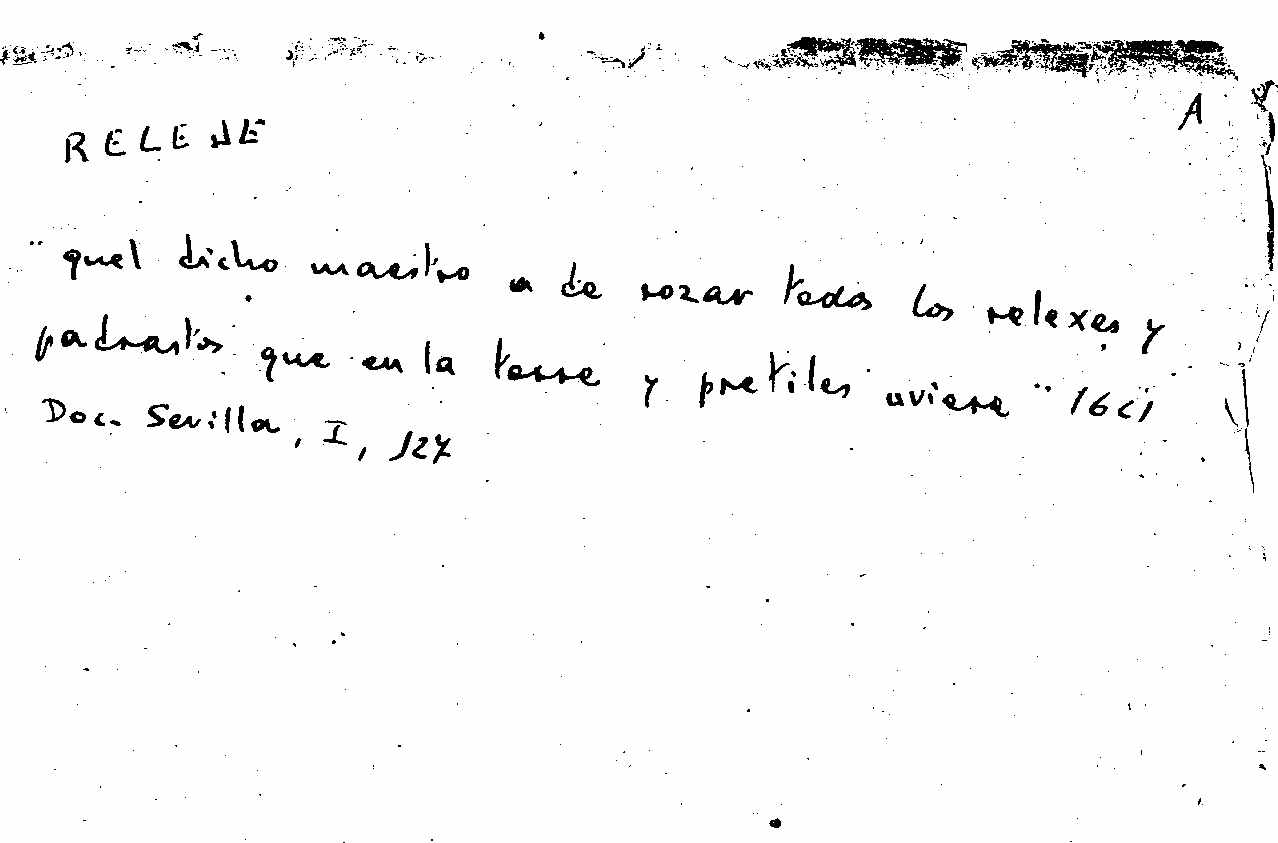 A
RELEJE
"quel dicho maestro a de rozar todos los relexes y
padrastos que en la torre y pretiles uviere"
Doc. Sevilla, I, 127